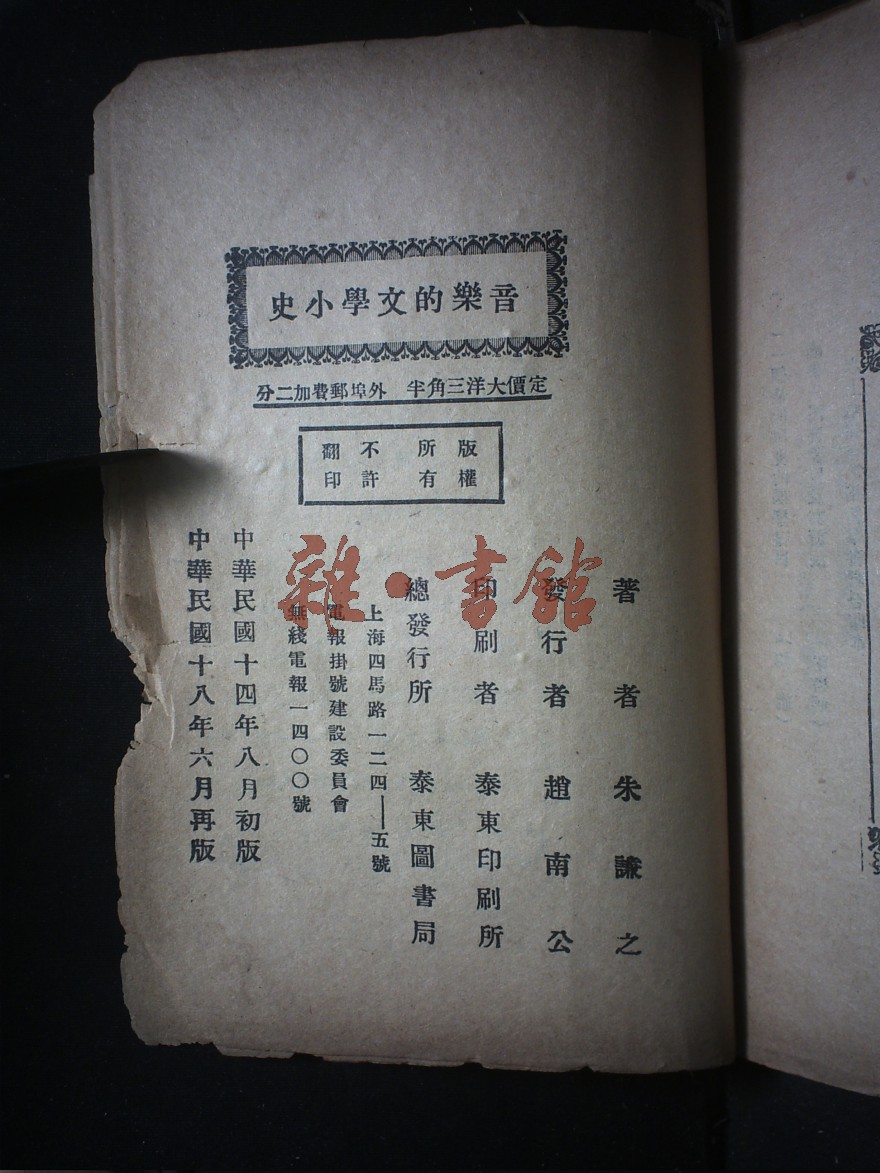 音樂的文學小史
定價大洋三角半 外埠郵費加二分
版權所有
不許翻印
著者 朱謙之
發行者 趙南公
印刷者 泰東印刷所
總發行所 泰東圖書局
上海四馬路一二四——五號
電報掛號建設委員會
無綫電報一四〇〇號
中華民國十四年八月初版
中華民國十八年六月再版
雜·書館